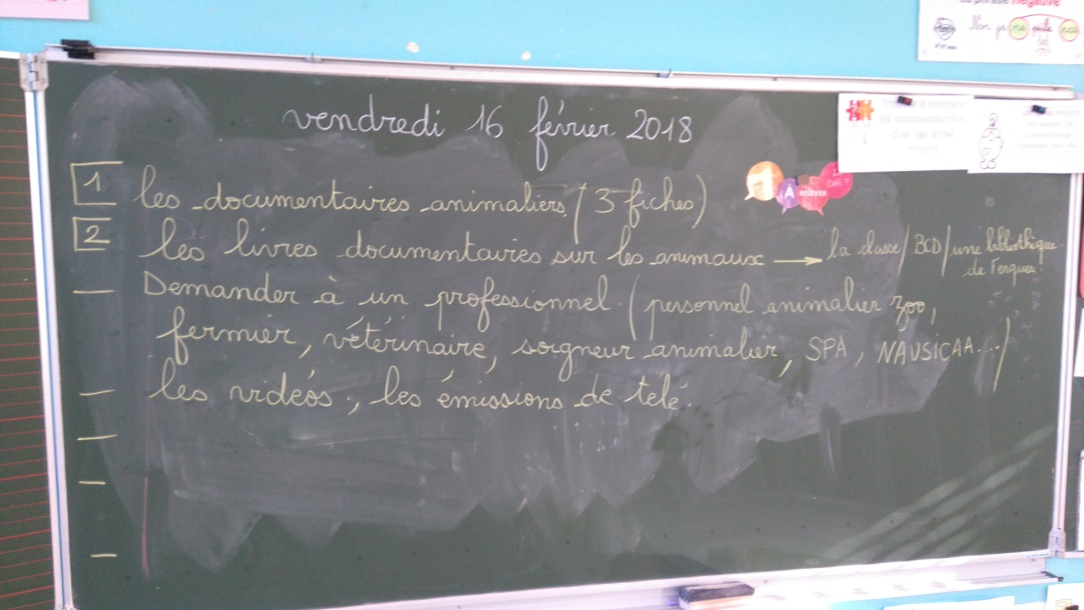 la phrase négative
Non je ne parle pas
vendredi 16 février 2018
1 les documentaires animaliers (3 fiches)
A RELEVER
Défi
2 les livres documentaires sur les animaux → la classe / BCD / une bibliothèque
de Ferques.
— Demander à un professionnel (personnel animalier zoo,
fermier, vétérinaire, soigneur animalier, SPA, NAUSICAA...)
— les vidéos, les émissions de télé.
—
—
—